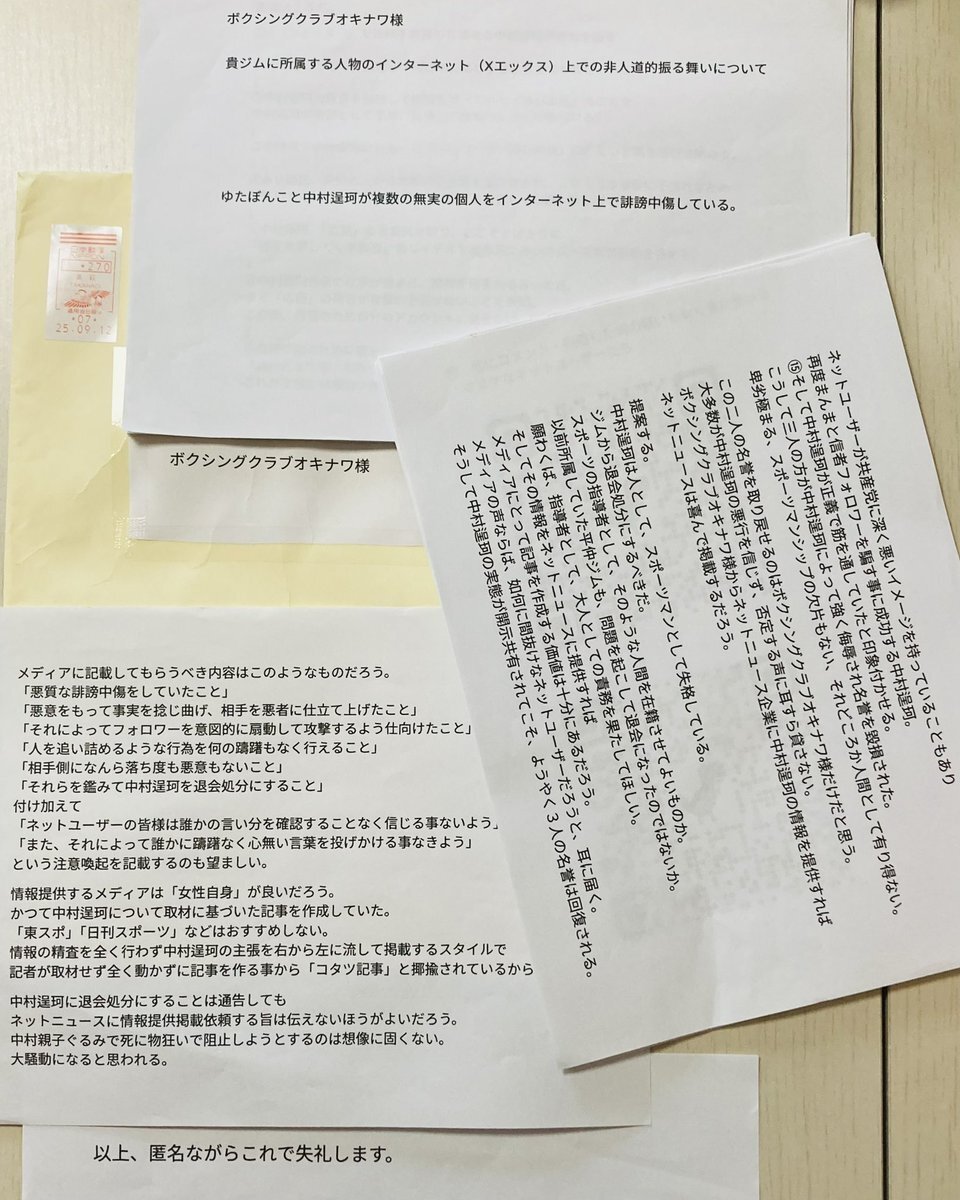 ボクシングクラブオキナワ様
貴ジムに所属する人物のインターネット（Xエックス）上での非人道的振る舞いについて
ゆたぼんこと中村逞珂が複数の無実の個人をインターネット上で誹謗中傷している。
270
25.09.12
ボクシングクラブオキナワ様
ネットユーザーが共産党に深く悪いイメージを持っていることもあり
再度まんまと信者フォロワーを騙す事に成功する中村逞珂。
⑮そして中村逞珂が正義で筋を通していたと印象付かせる。
こうして三人の方が中村逞珂によって強く侮辱され名誉を毀損された。
卑劣極まる、スポーツマンシップの欠片もない、それどころか人間として有り得ない。
この二人の名誉を取り戻せるのはボクシングクラブオキナワ様だけだと思う。
大多数が中村逞珂の悪行を信じず、否定する声に耳すら貸さない。
ボクシングクラブオキナワ様からネットニュース企業に中村逞珂の情報を提供すれば
ネットニュースは喜んで掲載するだろう。
提案する。
中村逞珂は人として、スポーツマンとして失格している。
ジムから退会処分にするべきだ。
スポーツの指導者として、そのような人間を在籍させてよいものか。
以前所属していた平仲ジムも、問題を起こして退会になったのではないか。
願わくば、指導者として、大人としての責務を果たしてほしい。
そしてその情報をネットニュースに提供すれば
メディアにとって記事を作成する価値は十分にあるだろう。
メディアの声ならば、如何に間抜けなネットユーザーだろうと、耳に届く。
そうして中村逞珂の実態が開示共有されてこそ、ようやく３人の名誉は回復される。
メディアに記載してもらうべき内容はこのようなものだろう。
「悪質な誹謗中傷をしていたこと」
「悪意をもって事実を捻じ曲げ、相手を悪者に仕立て上げたこと」
「それによってフォロワーを意図的に扇動して攻撃するよう仕向けたこと」
「人を追い詰めるような行為を何の躊躇もなく行えること」
「相手側になんら落ち度も悪意もないこと」
「それらを鑑みて中村逞珂を退会処分にすること」
付け加えて
「ネットユーザーの皆様は誰かの言い分を確認することなく信じる事ないよう」
「また、それによって誰かに躊躇なく心無い言葉を投げかける事なきよう」
という注意喚起を記載するのも望ましい。
情報提供するメディアは「女性自身」が良いだろう。
かつて中村逞珂について取材に基づいた記事を作成していた。
「東スポ」「日刊スポーツ」などはおすすめしない。
情報の精査を全く行わず中村逞珂の主張を右から左に流して掲載するスタイルで
記者が取材せず全く動かずに記事を作る事から「コタツ記事」と揶揄されているから
中村逞珂に退会処分にすることは通告しても
ネットニュースに情報提供掲載依頼する旨は伝えないほうがよいだろう。
中村親子ぐるみで死に物狂いで阻止しようとするのは想像に固くない。
大騒動になると思われる。
以上、匿名ながらこれで失礼します。